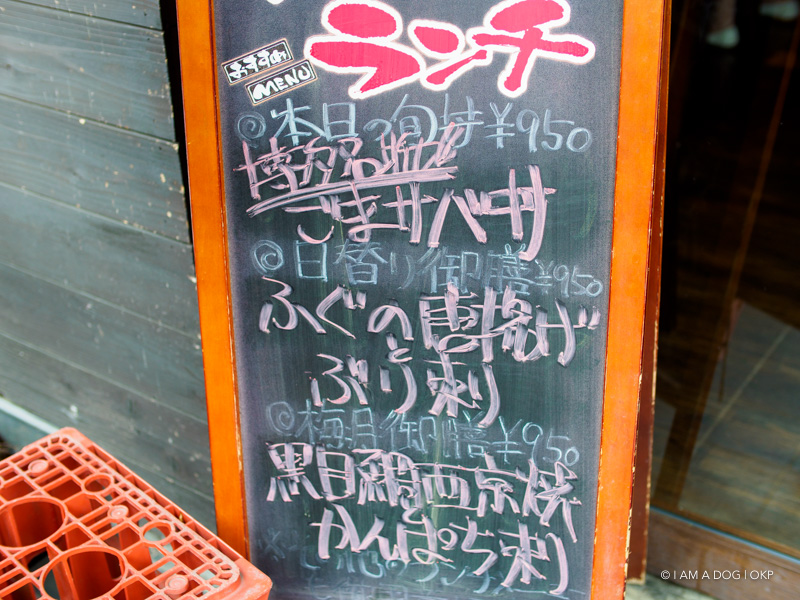 ランチ
おすすめ
MENU
◎本日の旬丼¥950
博多名物
ごまサバ丼
◎日替り御膳¥950
ふぐの唐揚げ
と
ぶり刺
◎梅月御膳¥950
黒目鯛西京焼
かんぱち刺
© I AM A DOG | OKP